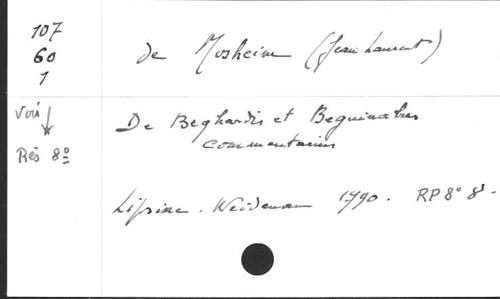 107
60
1
de Mosheim (Jean Laurent)
Voir
Rés 8º
De Beghardis et Beguinabus
commentarius
Lipsiae. Weideman 1790. RP 8º 8.